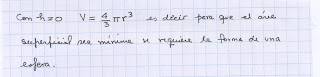 Con h=0 V = 4/3 πr³ es decir para que el área
superficial sea mínima se requiere la forma de una
esfera.